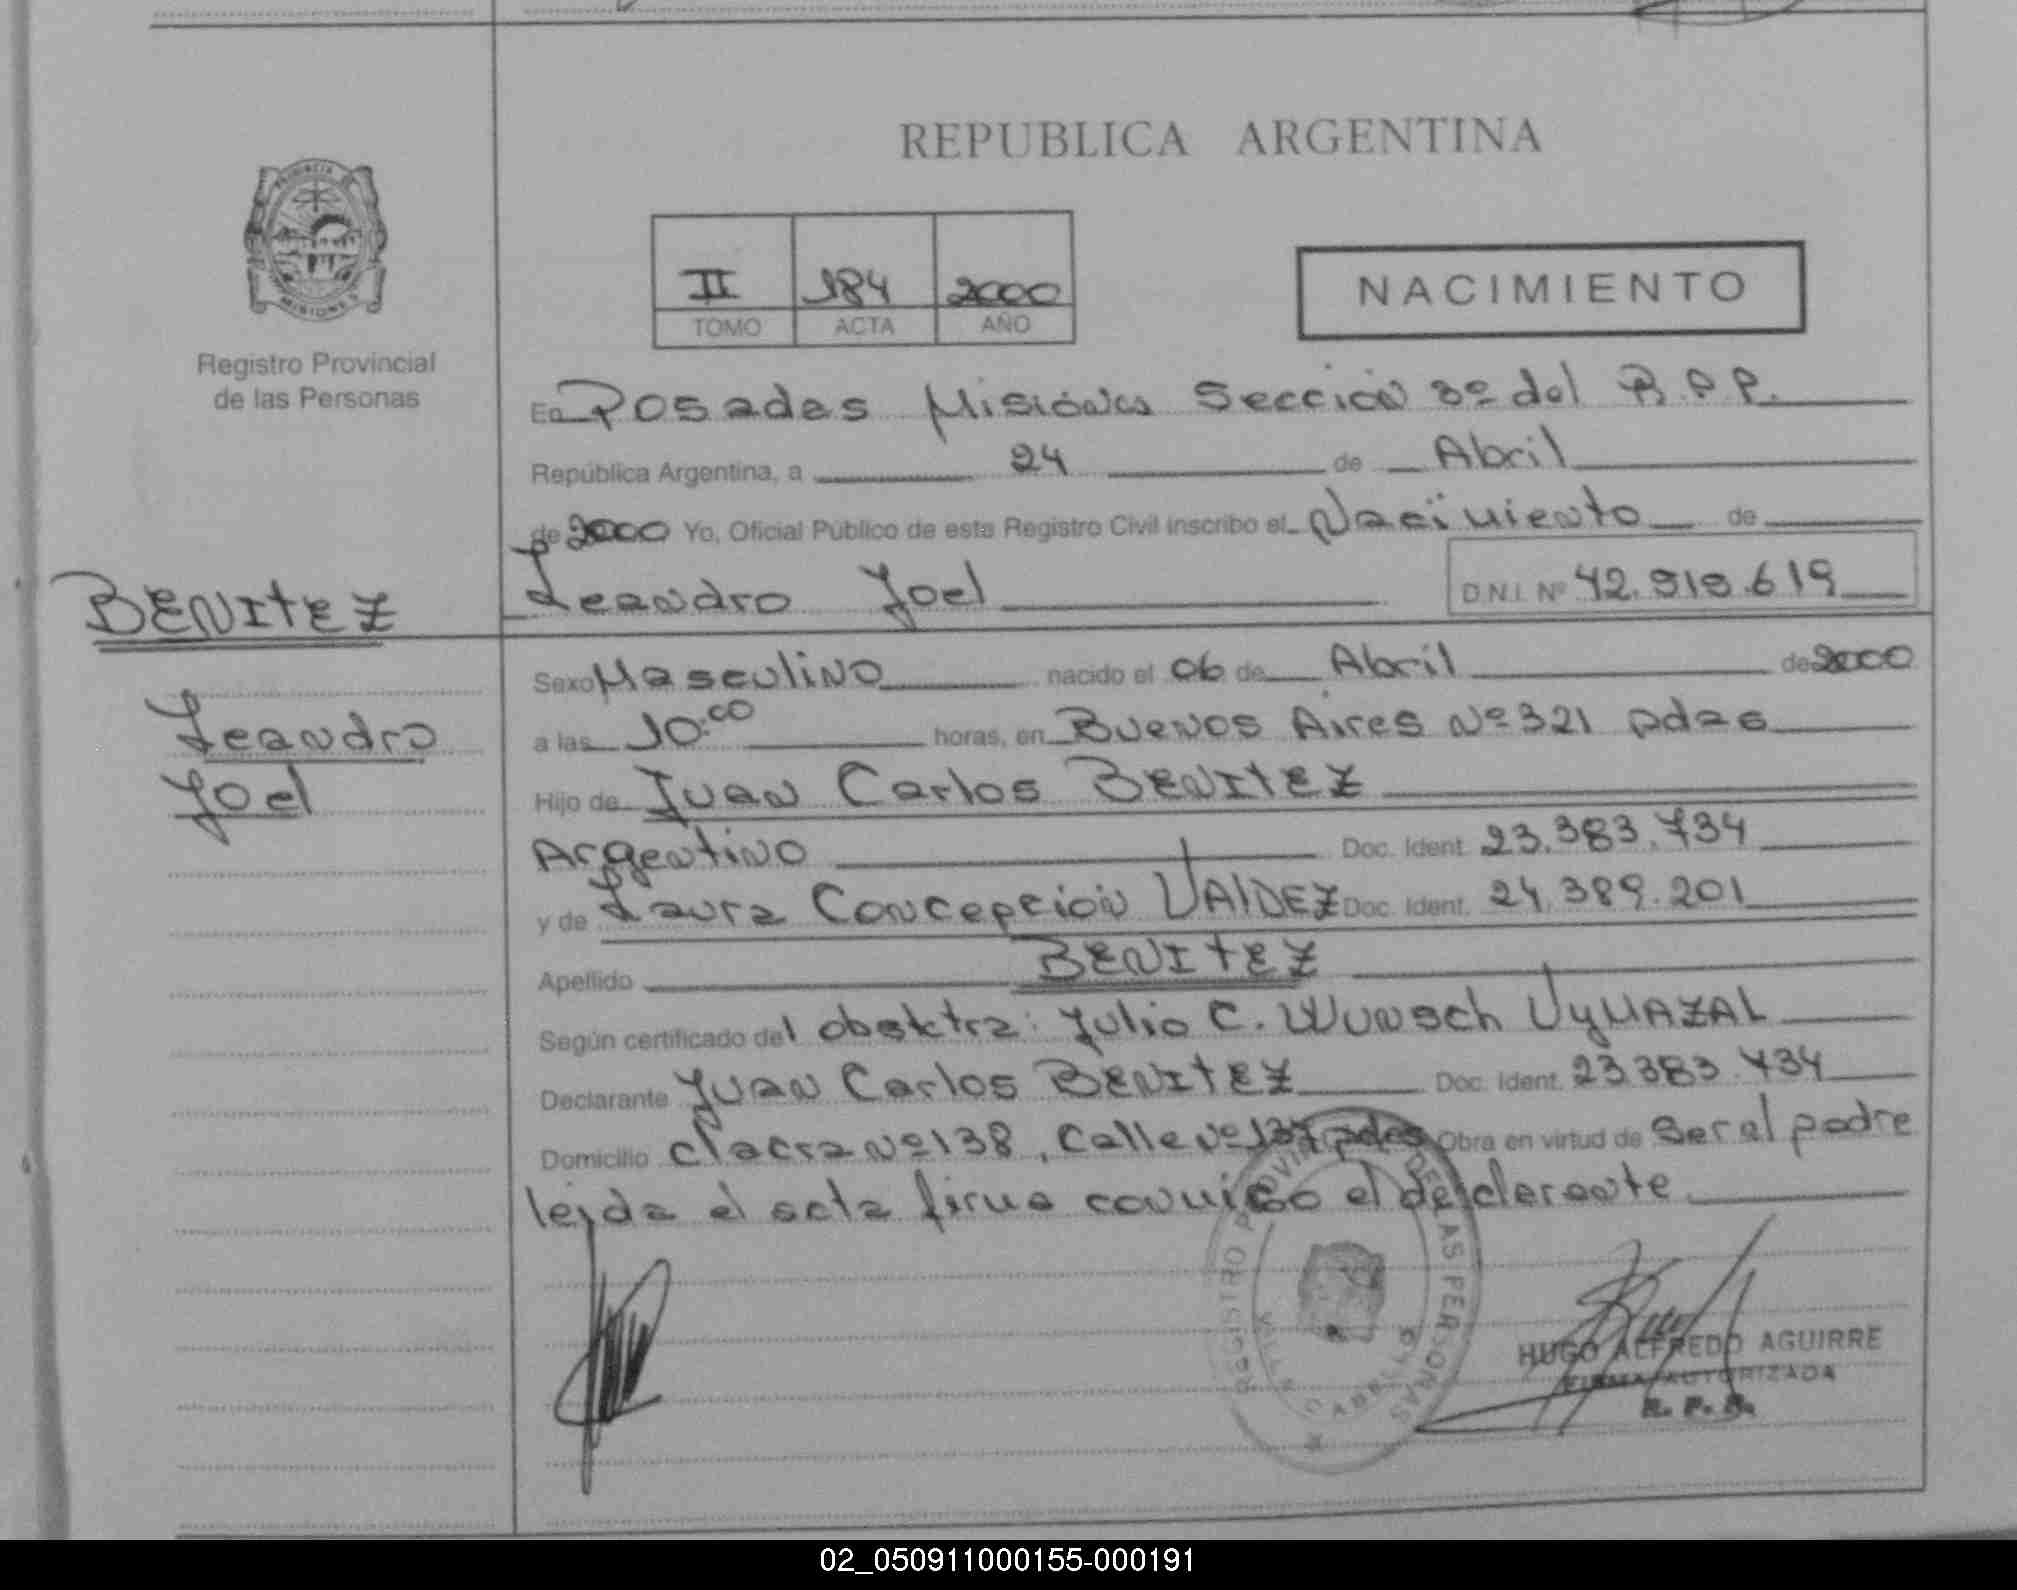 REPUBLICA ARGENTINA
PROVINCIA DE
MISIONES
Registro Provincial
de las Personas
II 184 2000
TOMO ACTA AÑO
NACIMIENTO
En Posadas Misiones Sección 3º del R.P.P.
República Argentina, a 24 de Abril
de 2000 Yo, Oficial Público de este Registro Civil inscribo el Nacimiento de
Leandro Joel D.N.I. Nº 42.919.619
BENITEZ
Leandro
Joel
Sexo Masculino nacido el 06 de Abril de 2000
a las 10:00 horas, en Buenos Aires Nº 321 pdas
Hijo de Juan Carlos BENITEZ
Argentino Doc. Ident. 23.383.734
y de Laura Concepción VAlDEZ Doc. Ident. 24.389.201
Apellido BENITEZ
Según certificado del obsktra: Julio C. Wunsch VyMAZAL
Declarante Juan Carlos BENITEZ Doc. Ident. 23.383.734
Domicilio chacra Nº 138, Calle Nº pdas Obra en virtud de ser el padre
leida el acta firma conmigo el declarante
REGISTRO PROVINCIAL DE LAS PERSONAS
VILLA CABELLO
HUGO ALFREDO AGUIRRE
FIRMA AUTORIZADA
R. P. P.
02_050911000155-000191